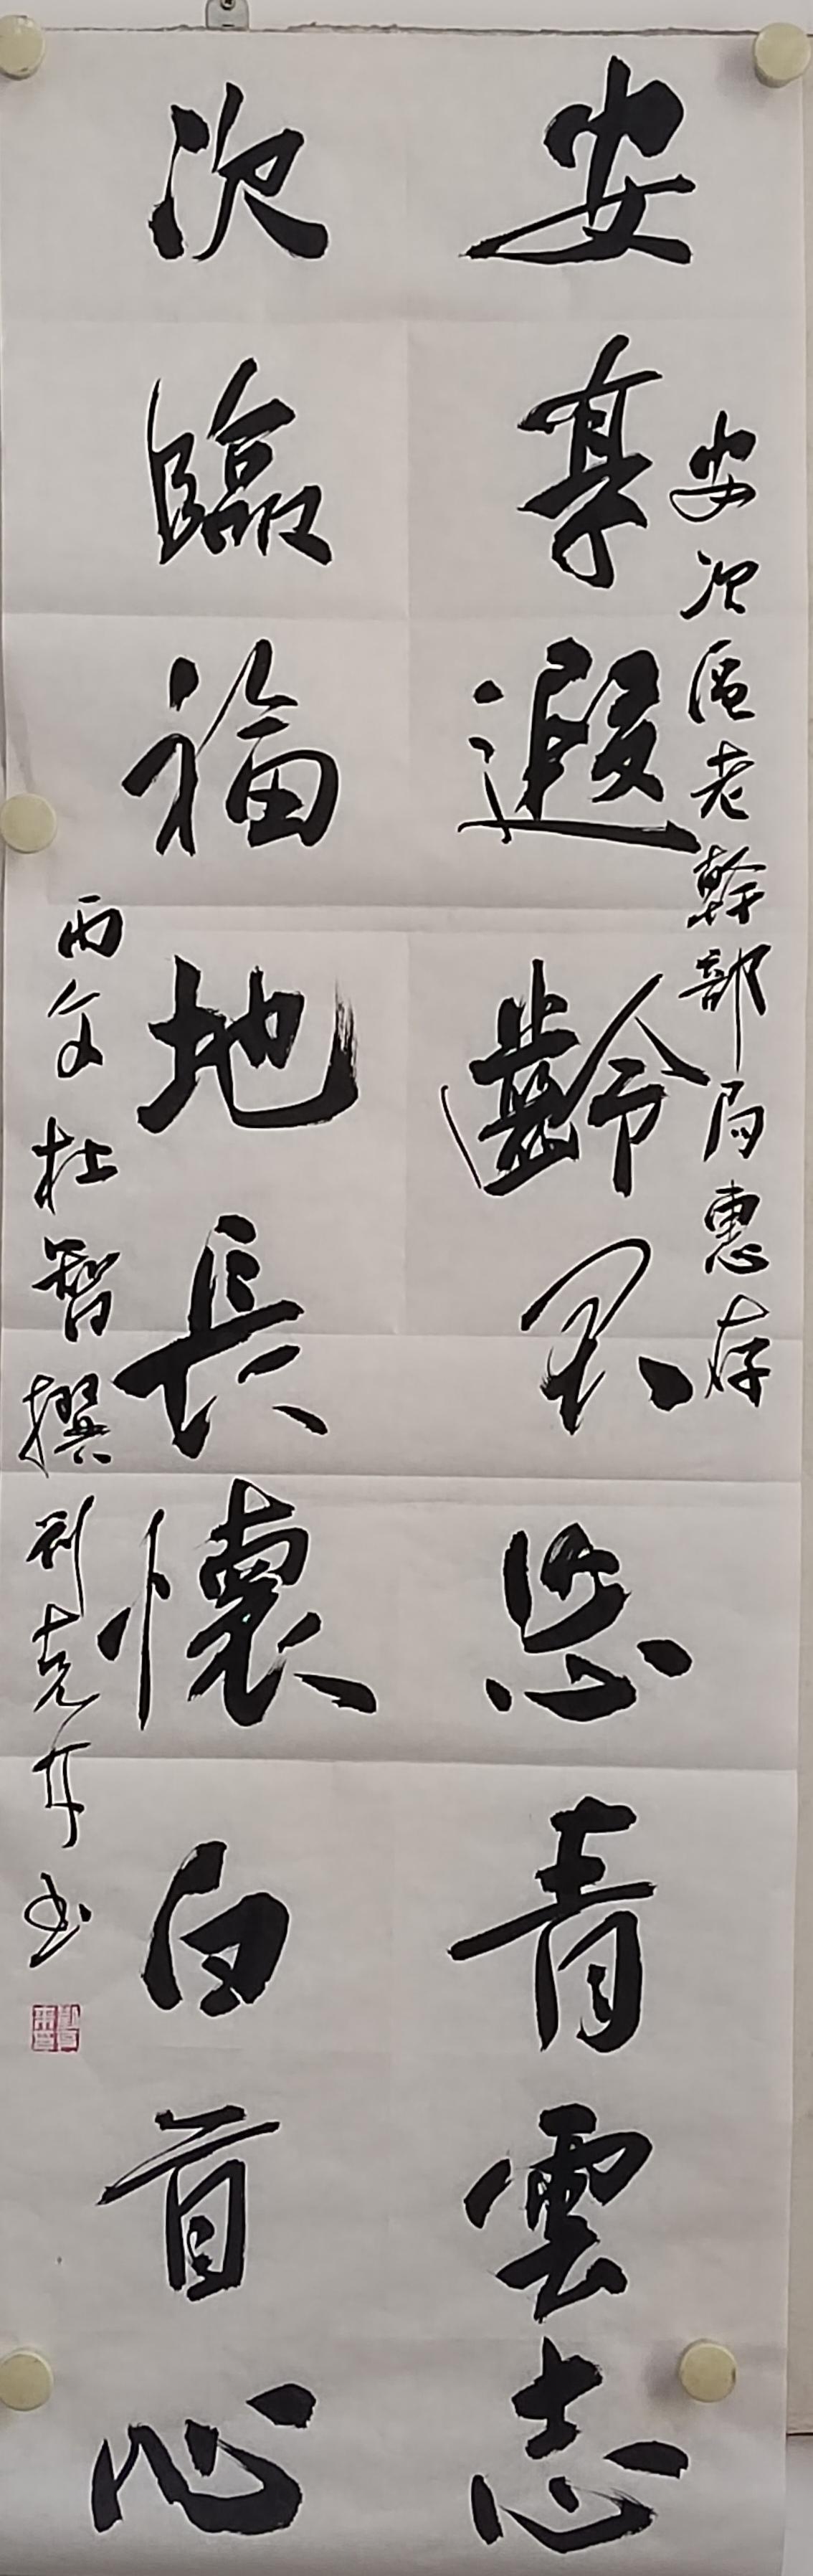 安享遐齡不墜青雲志
安次區老幹部局惠存
次臨福地長懷白首心
丙午杜智撰劉克年书